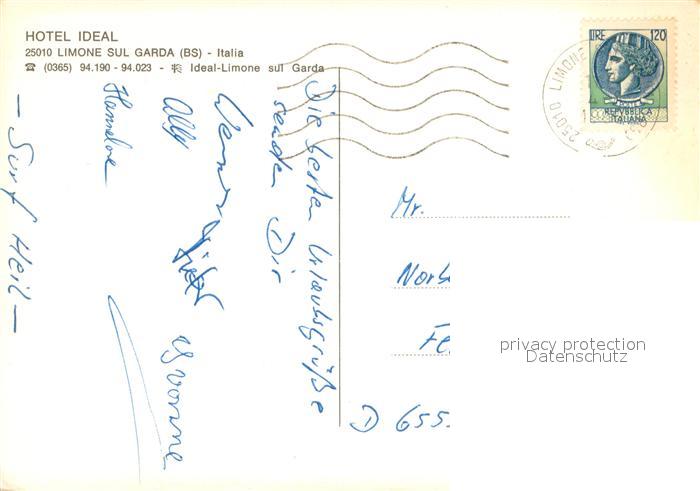 HOTEL IDEAL
25010 LIMONE SUL GARDA (BS) - Italia
☎ (0365) 94.190 - 94.023 - Ideal-Limone sul Garda
LIRE 120
REPVBBLICA
ITALIANA
25010 LIMONE
Die besten Urlaubsgrüße
senden Dir
Werner
Yvonne
Hannelore
— Surf Heil —
Mr.
Norb
Fe
D 655
privacy protection
Datenschutz